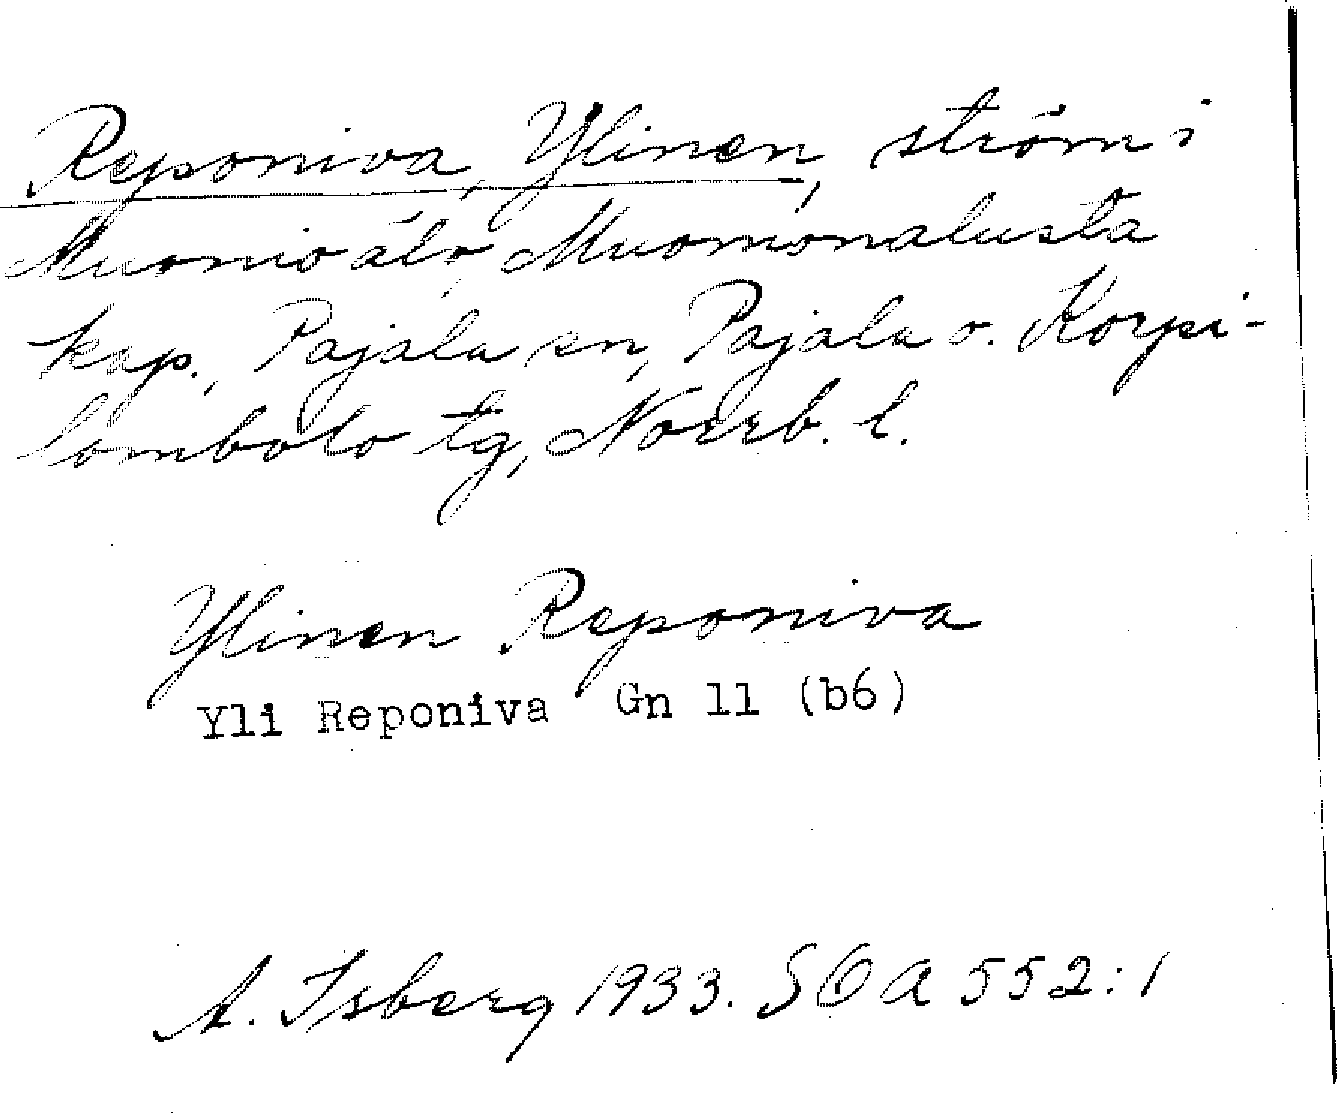 Reponiva, Ylinen, ström i
Muonio älv, Muonionalusta
kap., Pajala sn, Pajala o. Korpi-
lombolo tg, Norrb. l.
Ylinen Reponiva
Yli Reponiva Gn 11 (b6)
A. Isberg 1933. SOA 552:1